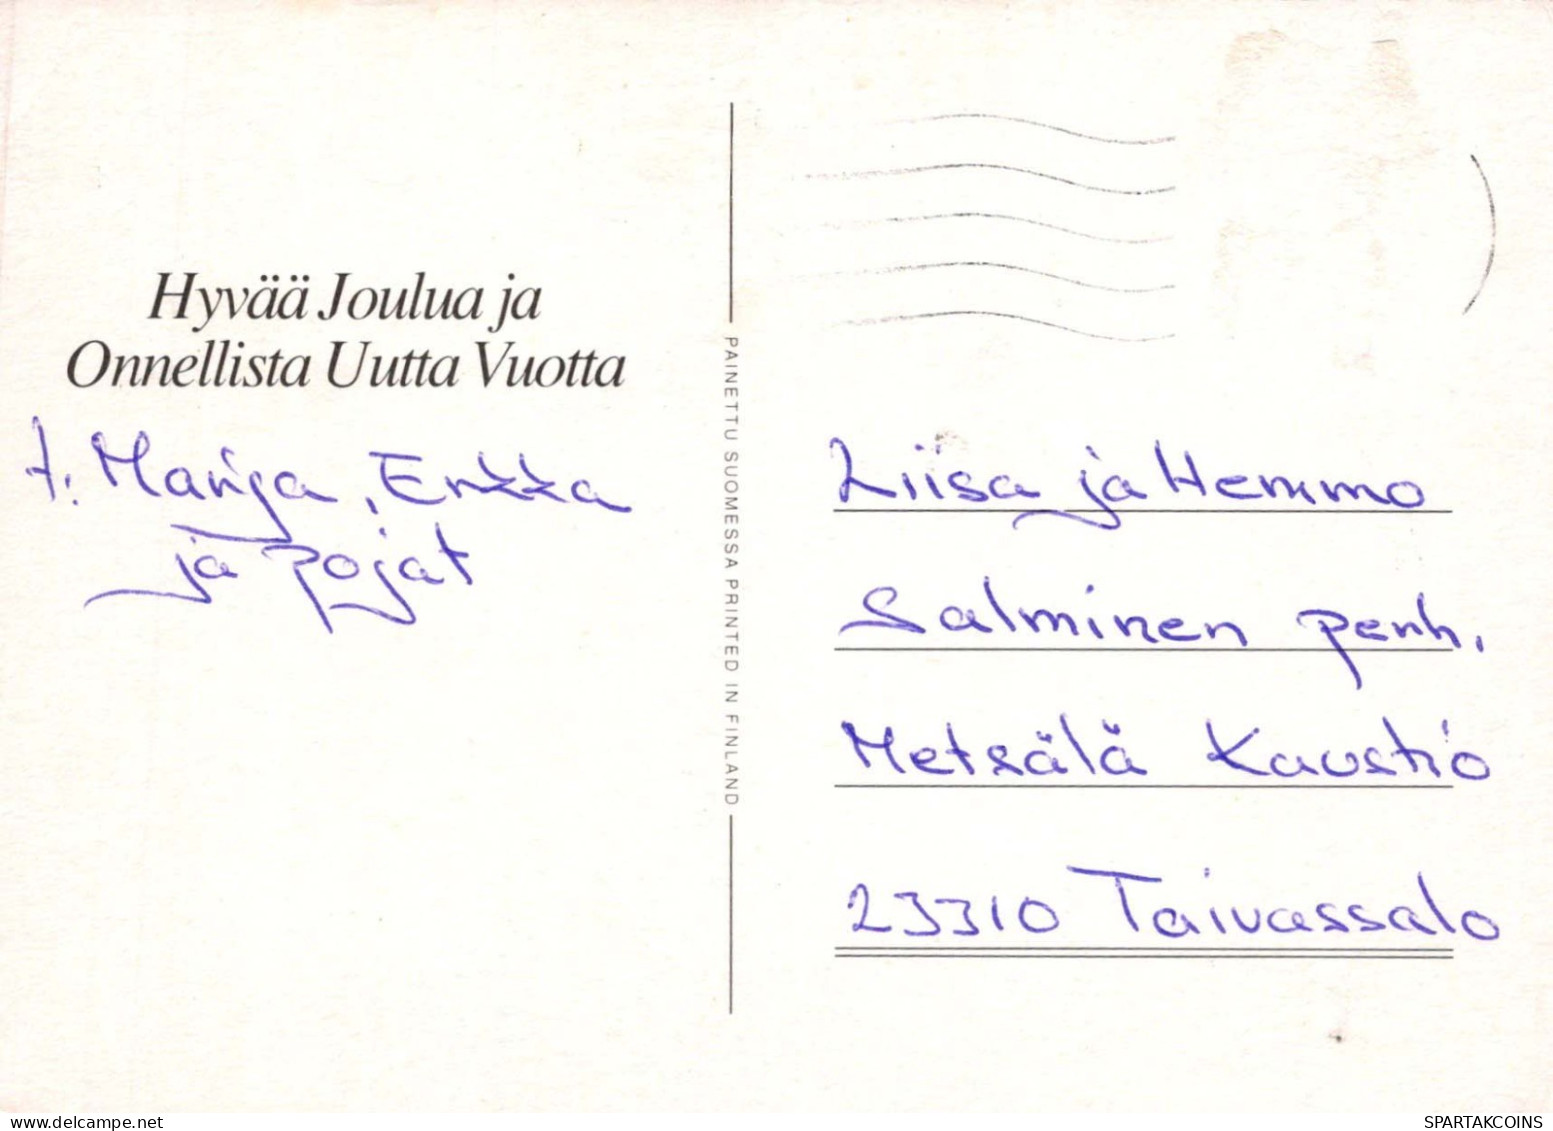 Hyvää Joulua ja
Onnellista Uutta Vuotta
t. Marija, Erkka
ja pojat
PAINETTU SUOMESSA PRINTED IN FINLAND
Liisa ja Hemmo
Salminen perh.
Metsälä Kaustio
23310 Taivassalo
delcampe.net
SPARTAKCOINS